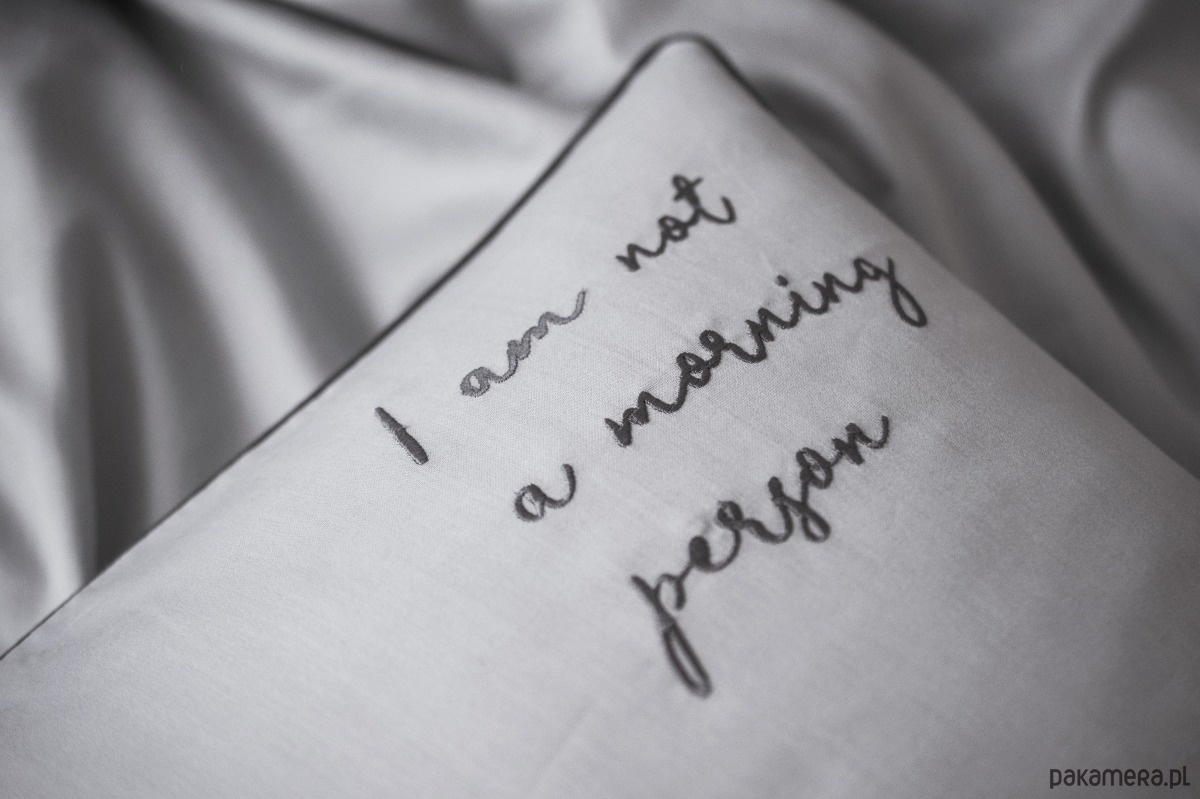 I am not
a morning
person
pakamera.pl